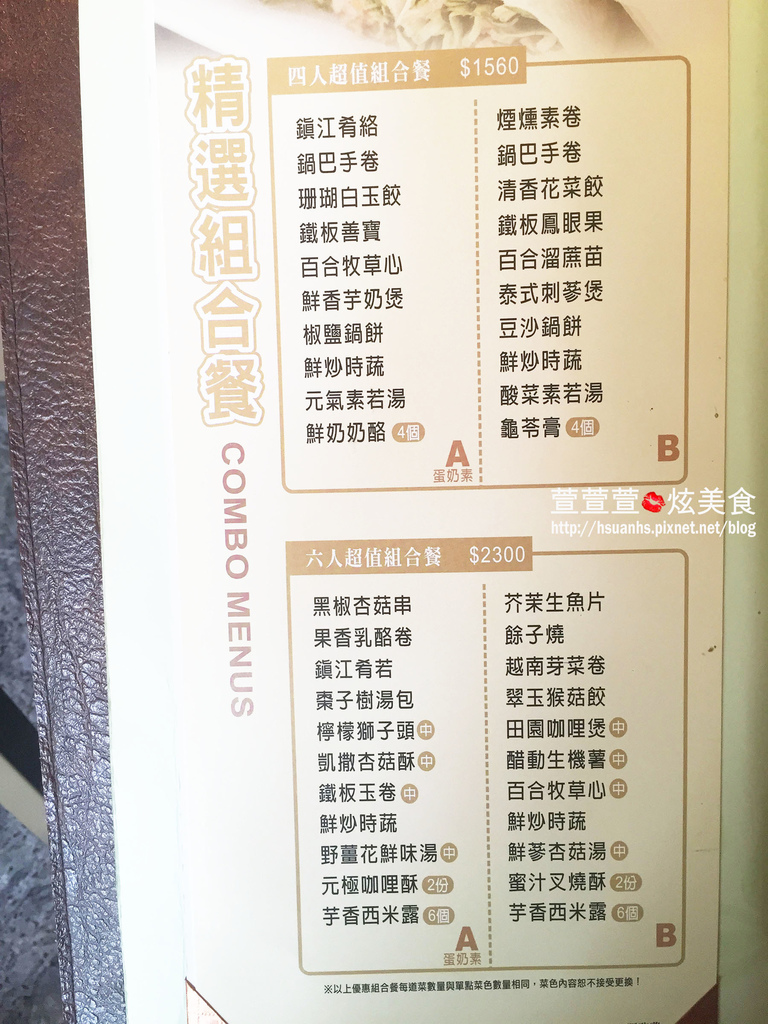 精選組合餐
COMBO MENUS
四人超值組合餐 $1560
鎮江肴絡
鍋巴手卷
珊瑚白玉餃
鐵板善寶
百合牧草心
鮮香芋奶煲
椒鹽鍋餅
鮮炒時蔬
元氣素若湯
鮮奶奶酪 4個
A
蛋奶素
煙燻素卷
鍋巴手卷
清香花菜餃
鐵板鳳眼果
百合溜蔴苗
泰式刺蔘煲
豆沙鍋餅
鮮炒時蔬
酸菜素若湯
龜苓膏 4個
B
萱萱萱 炫美食
http://hsuanhs.pixnet.net/blog
六人超值組合餐 $2300
黑椒杏菇串
果香乳酪卷
鎮江肴若
棗子樹湯包
檸檬獅子頭 中
凱撒杏菇酥 中
鐵板玉卷 中
鮮炒時蔬
野薑花鮮味湯 中
元極咖哩酥 2份
芋香西米露 6個
A
蛋奶素
芥茉生魚片
餘子燒
越南芽菜卷
翠玉猴菇餃
田園咖哩煲 中
醋動生機薯 中
百合牧草心 中
鮮炒時蔬
鮮蔘杏菇湯 中
蜜汁叉燒酥 2份
芋香西米露 6個
B
※以上優惠組合餐每道菜數量與單點菜色數量相同，菜色內容恕不接受更換！